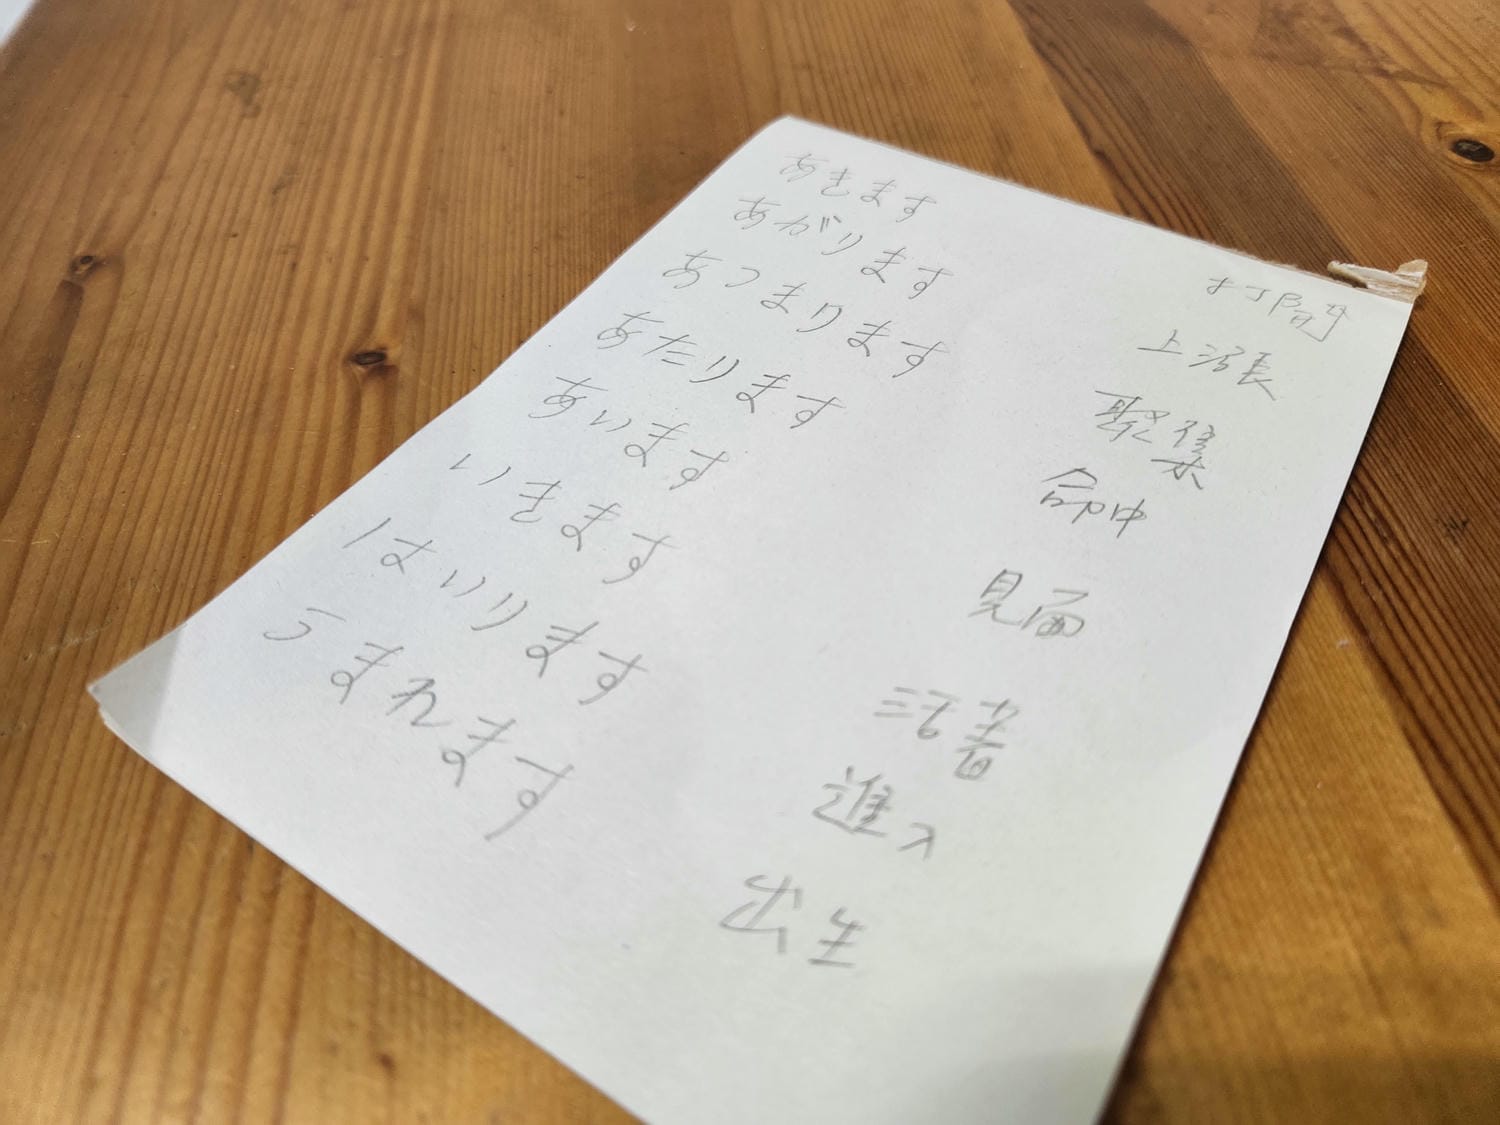 あきます 打開
あがります 上漲
あつまります 聚集
あたります 命中
あいます 見面
いきます 活着
はいります 進入
うまれます 出生